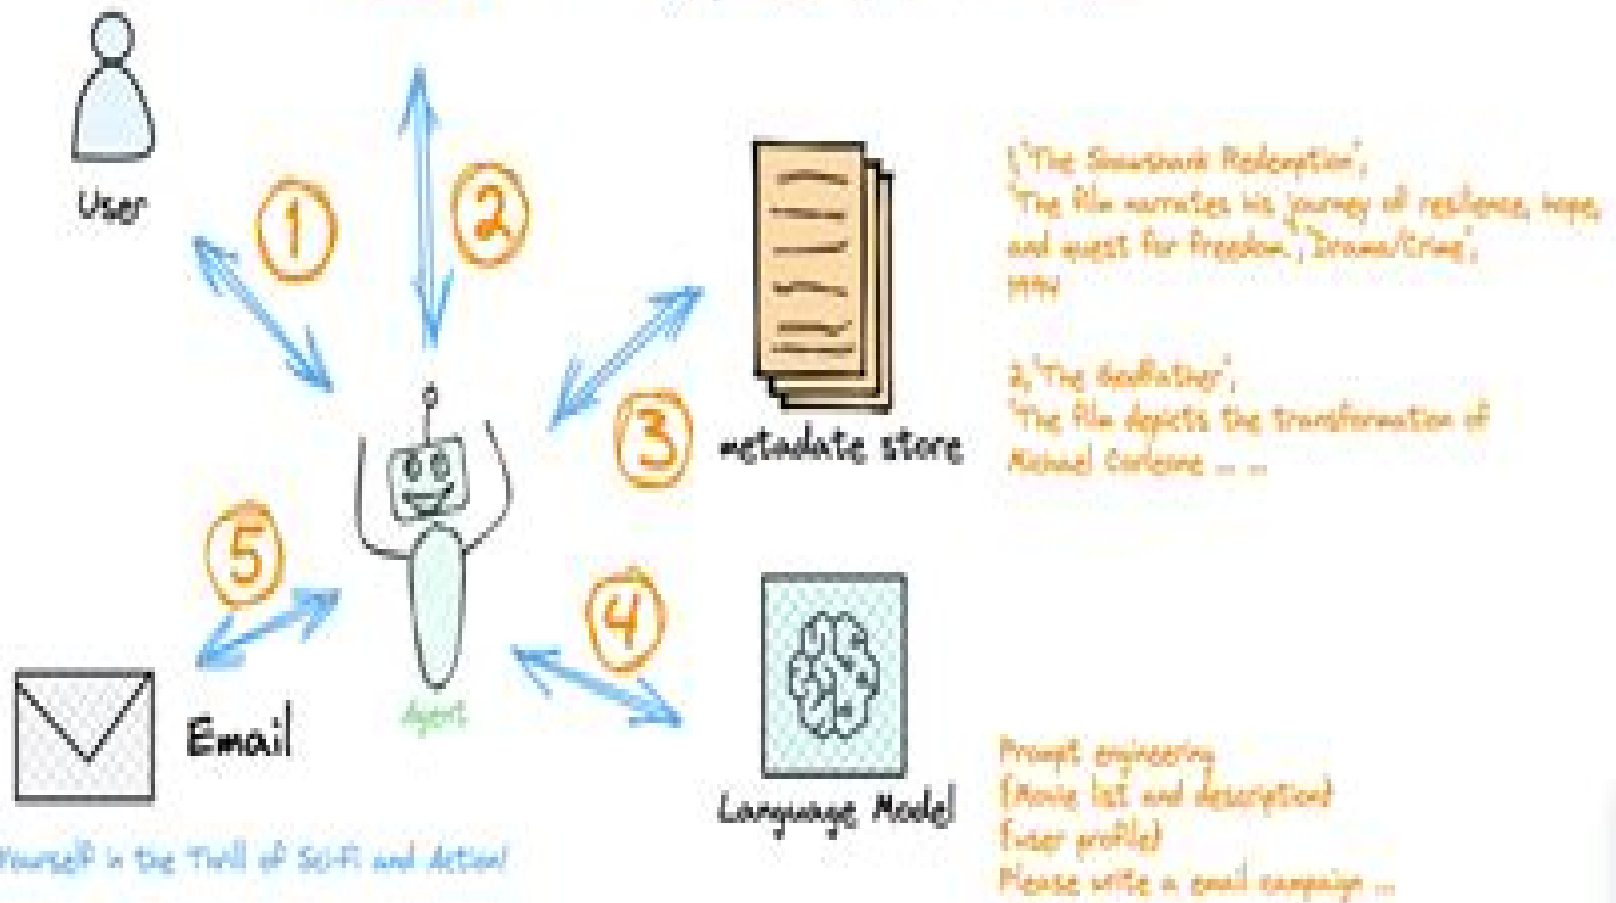 User
1
2
1,'The Shawshank Redemption',
'The film narrates his journey of resilience, hope,
and quest for freedom.','Drama/Crime',
1994
3
metadate store
2,'The Godfather',
'The film depicts the transformation of
Michael Corleone ... ...
5
4
Agent
Email
Language Model
Prompt engineering
{Movie list and description}
{user profile}
Please write a email campaign ...
Yourself in the Thrill of Sci-Fi and Action!